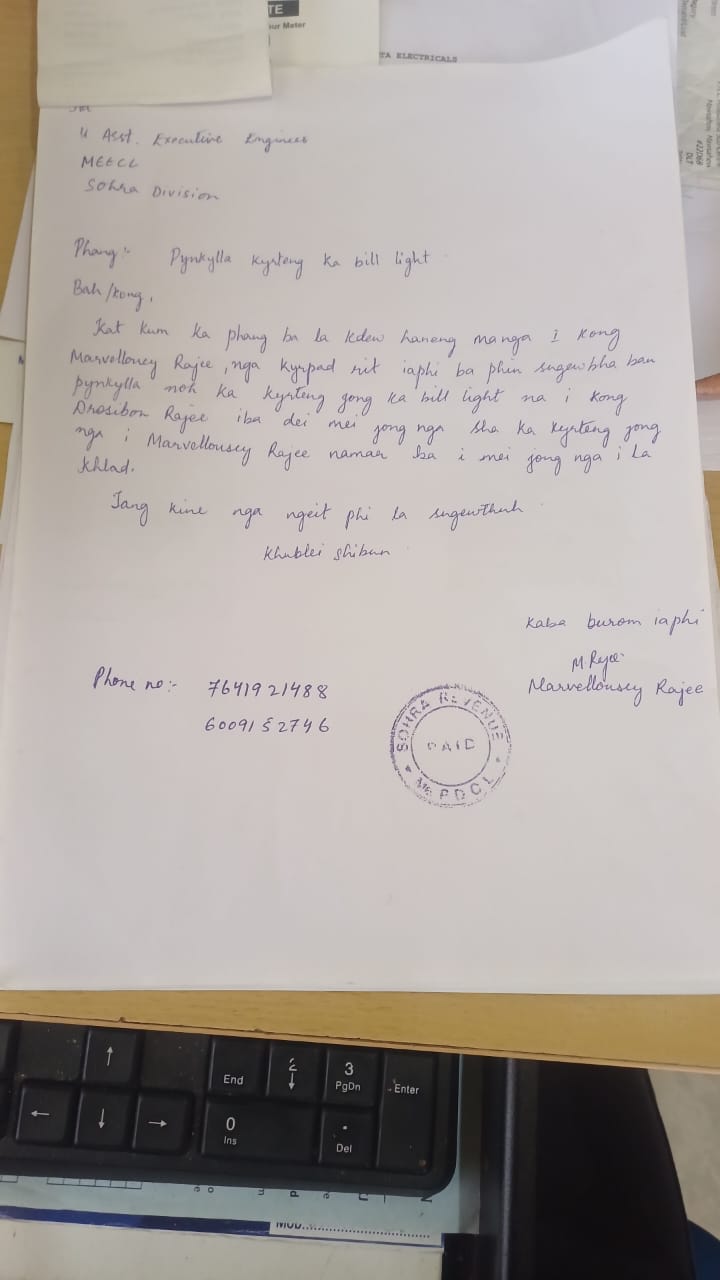 TE
our Meter
TA ELECTRICALS
Asst. Executive Engineer
MEECL
Sohra Division
Phang:- Pynkylla kyrteng ka bill light
Bah/kong,
Kat kum ka phang ba la kdew haneng manga I kong
Marvellousey Rajee, nga kyrpad rit iaphi ba phin sngewbha ban
pynkylla noh ka kyrteng jong ka bill light na i kong
Drosibon Rajee iba dei mei jong nga sha ka kyrteng jong
nga i Marvellousey Rajee namar ba i mei jong nga i La
khlad.
Tang kine nga ngeit phi la sngewthuh
Khublei shibun
Kaba burom iaphi
M. Rajee
Marvellousey Rajee
Phone no:- 7641921488
6009152746
SOHRA REVENUE
PAID
MePDCL
End
2
3
PgDn
Enter
0
Ins
.
Del
MOD